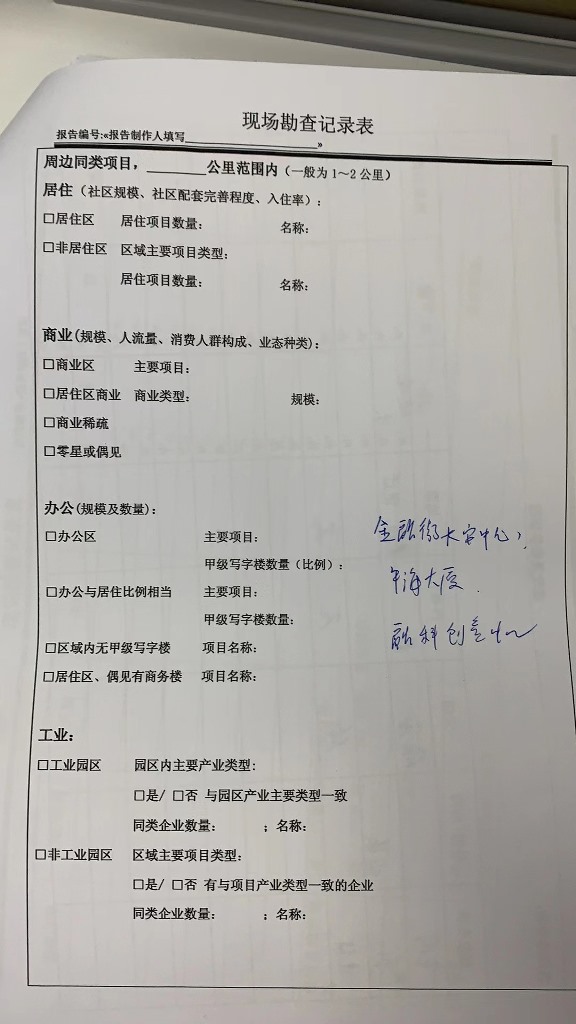 现场勘查记录表
报告编号:«报告制作人填写____________________»
周边同类项目，______公里范围内（一般为1～2公里）
居住（社区规模、社区配套完善程度、入住率）：
□居住区 居住项目数量： 名称：
□非居住区 区域主要项目类型：
居住项目数量： 名称：
商业(规模、人流量、消费人群构成、业态种类)：
□商业区 主要项目：
□居住区商业 商业类型： 规模：
□商业稀疏
□零星或偶见
办公(规模及数量)：
□办公区 主要项目： 金融街中心，
甲级写字楼数量（比例）：
□办公与居住比例相当 主要项目： 中海大厦.
甲级写字楼数量：
□区域内无甲级写字楼 项目名称： 融科创意中心
□居住区、偶见有商务楼 项目名称：
工业：
□工业园区 园区内主要产业类型:
□是/ □否 与园区产业主要类型一致
同类企业数量： ；名称：
□非工业园区 区域主要项目类型：
□是/ □否 有与项目产业类型一致的企业
同类企业数量： ；名称：